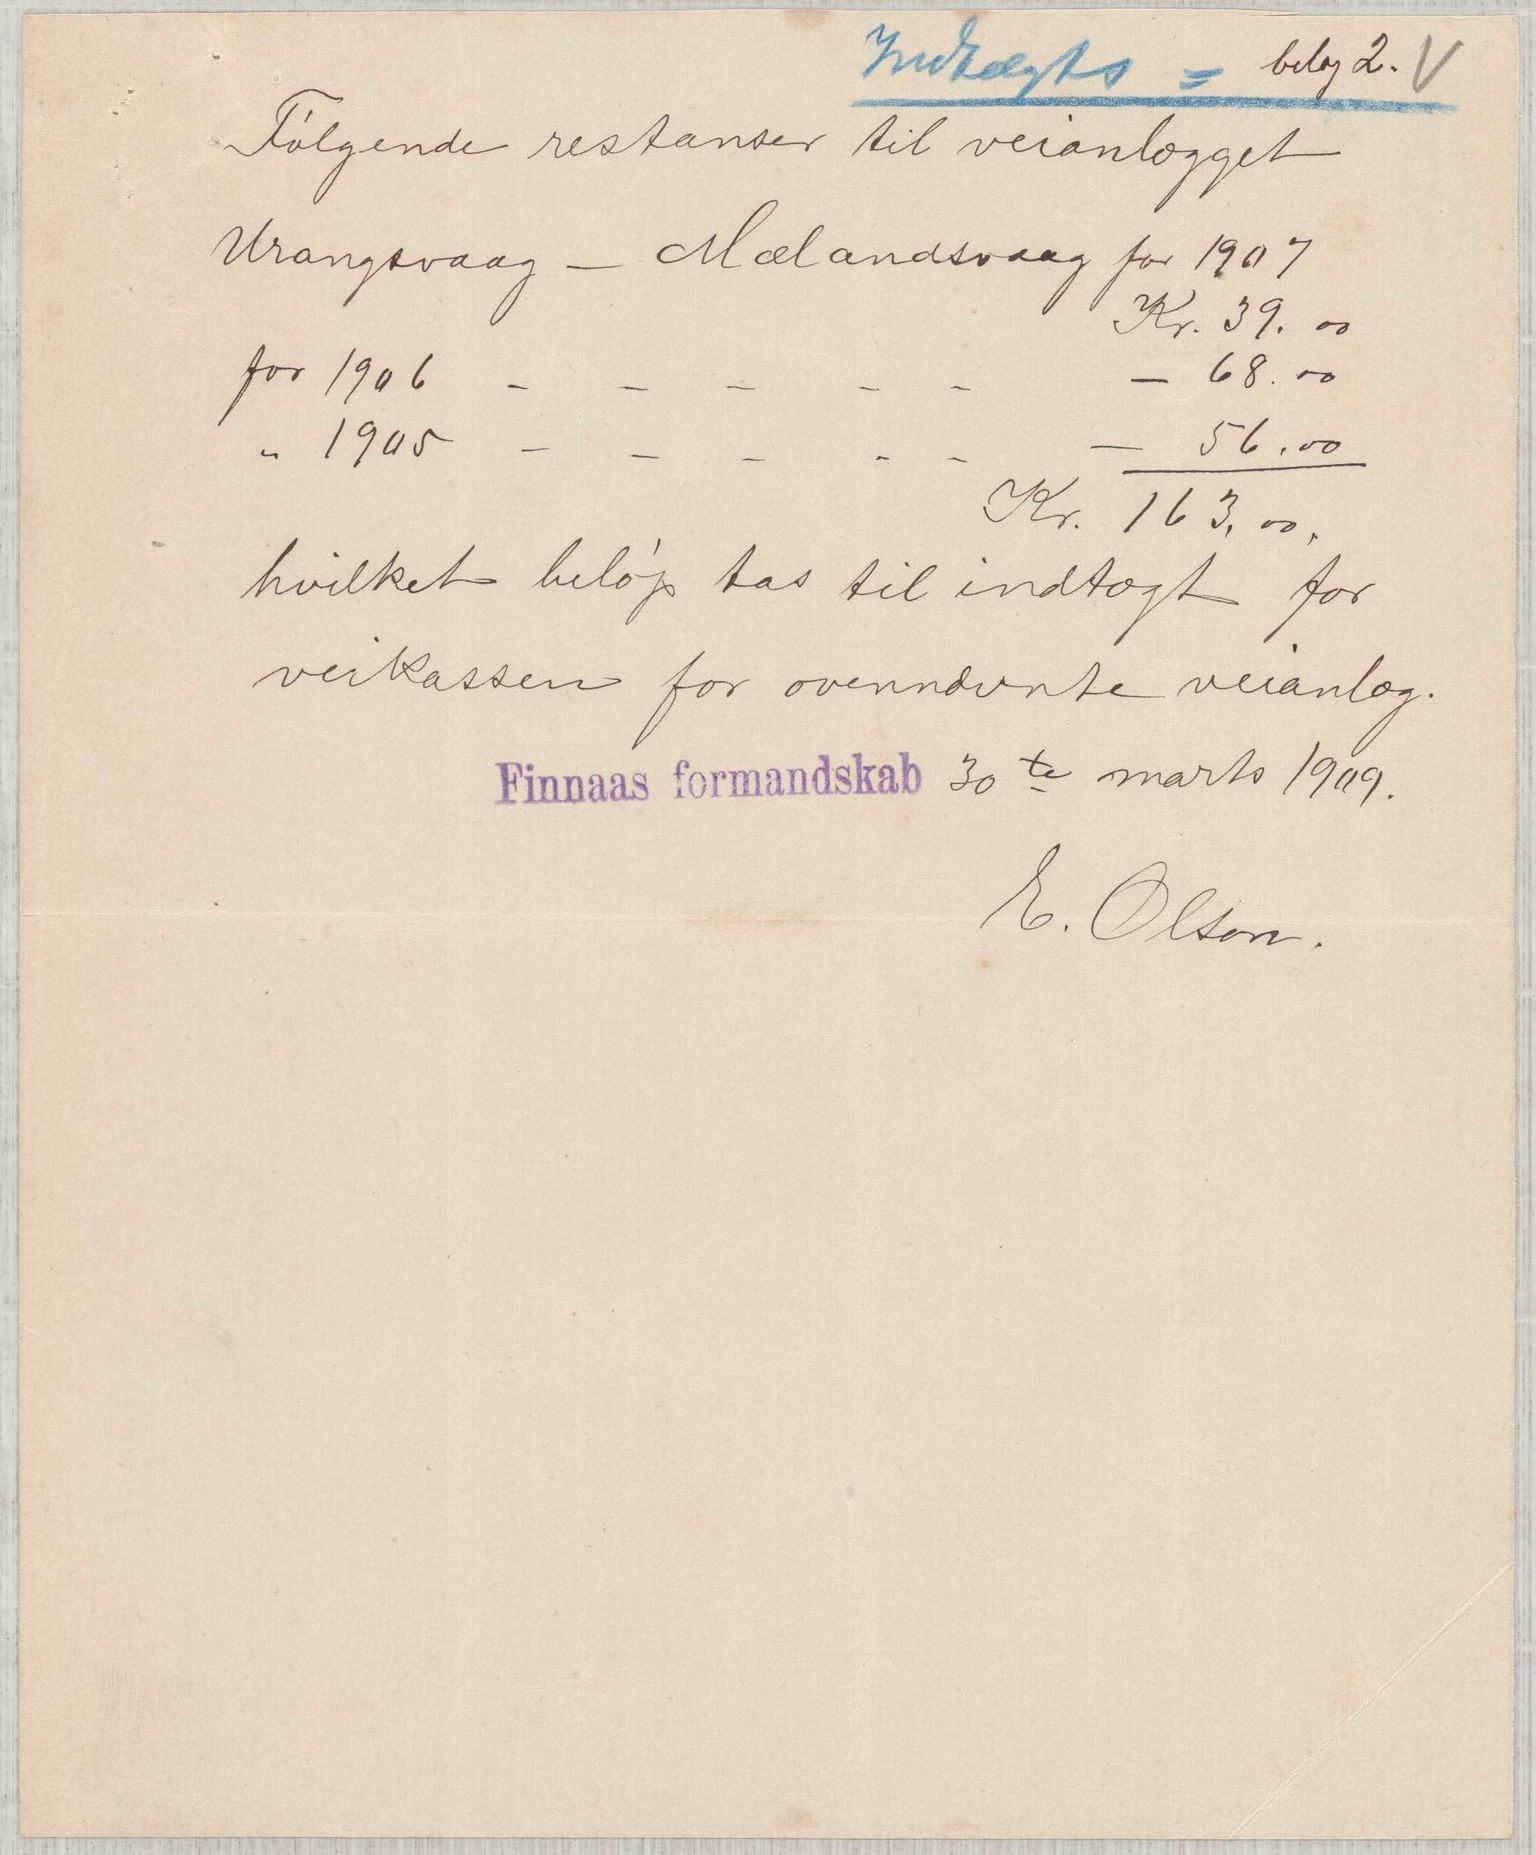 Indtægts = belag 2. V
Følgende restanser til veianlægget
Urangsvaag - Mælandsvaag for 1907
Kr. 39.00
for 1906 - - - - - - 68.00
" 1905 - - - - - - 56.00
Kr. 163.00.
hvilket beløp tas til indtægt for
veikassen for ovennævnte veianlæg.
Finnaas formandskab 30te marts 1909.
E. Olson.